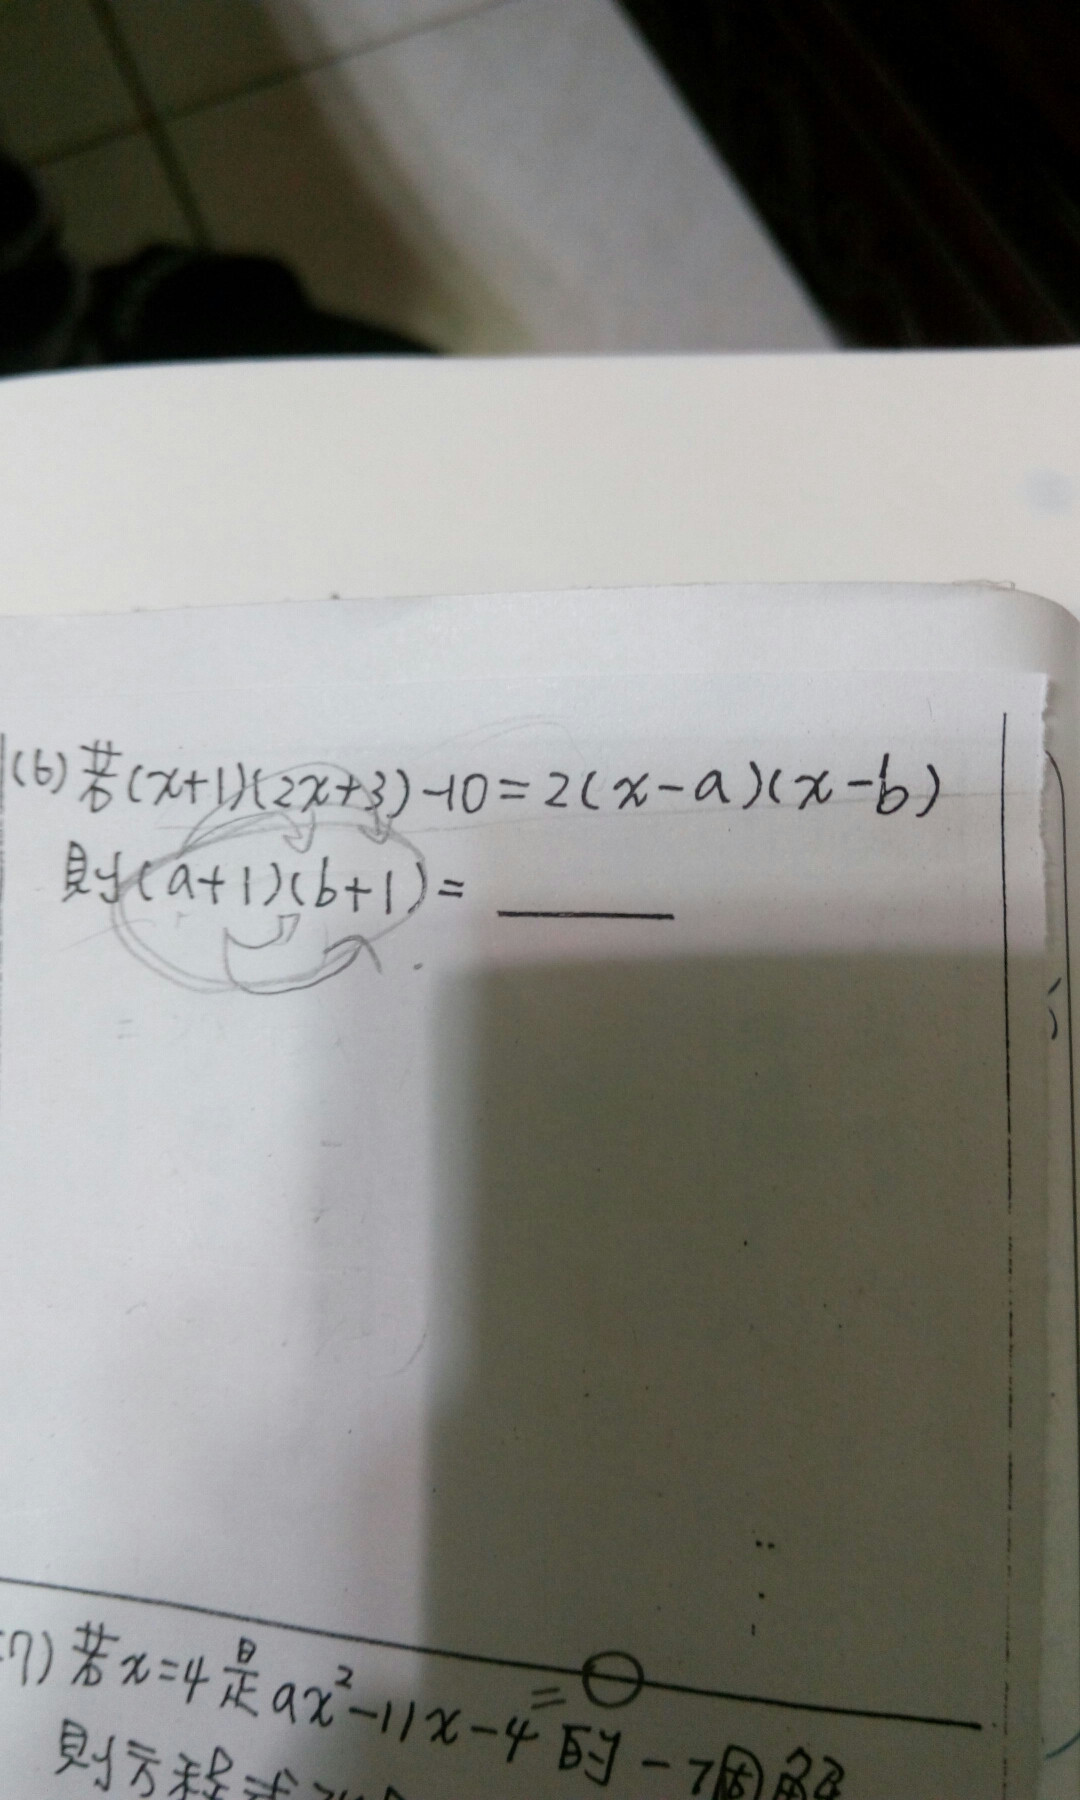 (6) 若(x+1)(2x+3)-10=2(x-a)(x-b)
則(a+1)(b+1)=
7) 若x=4是ax²-11x-4=0的一個解
則方程式